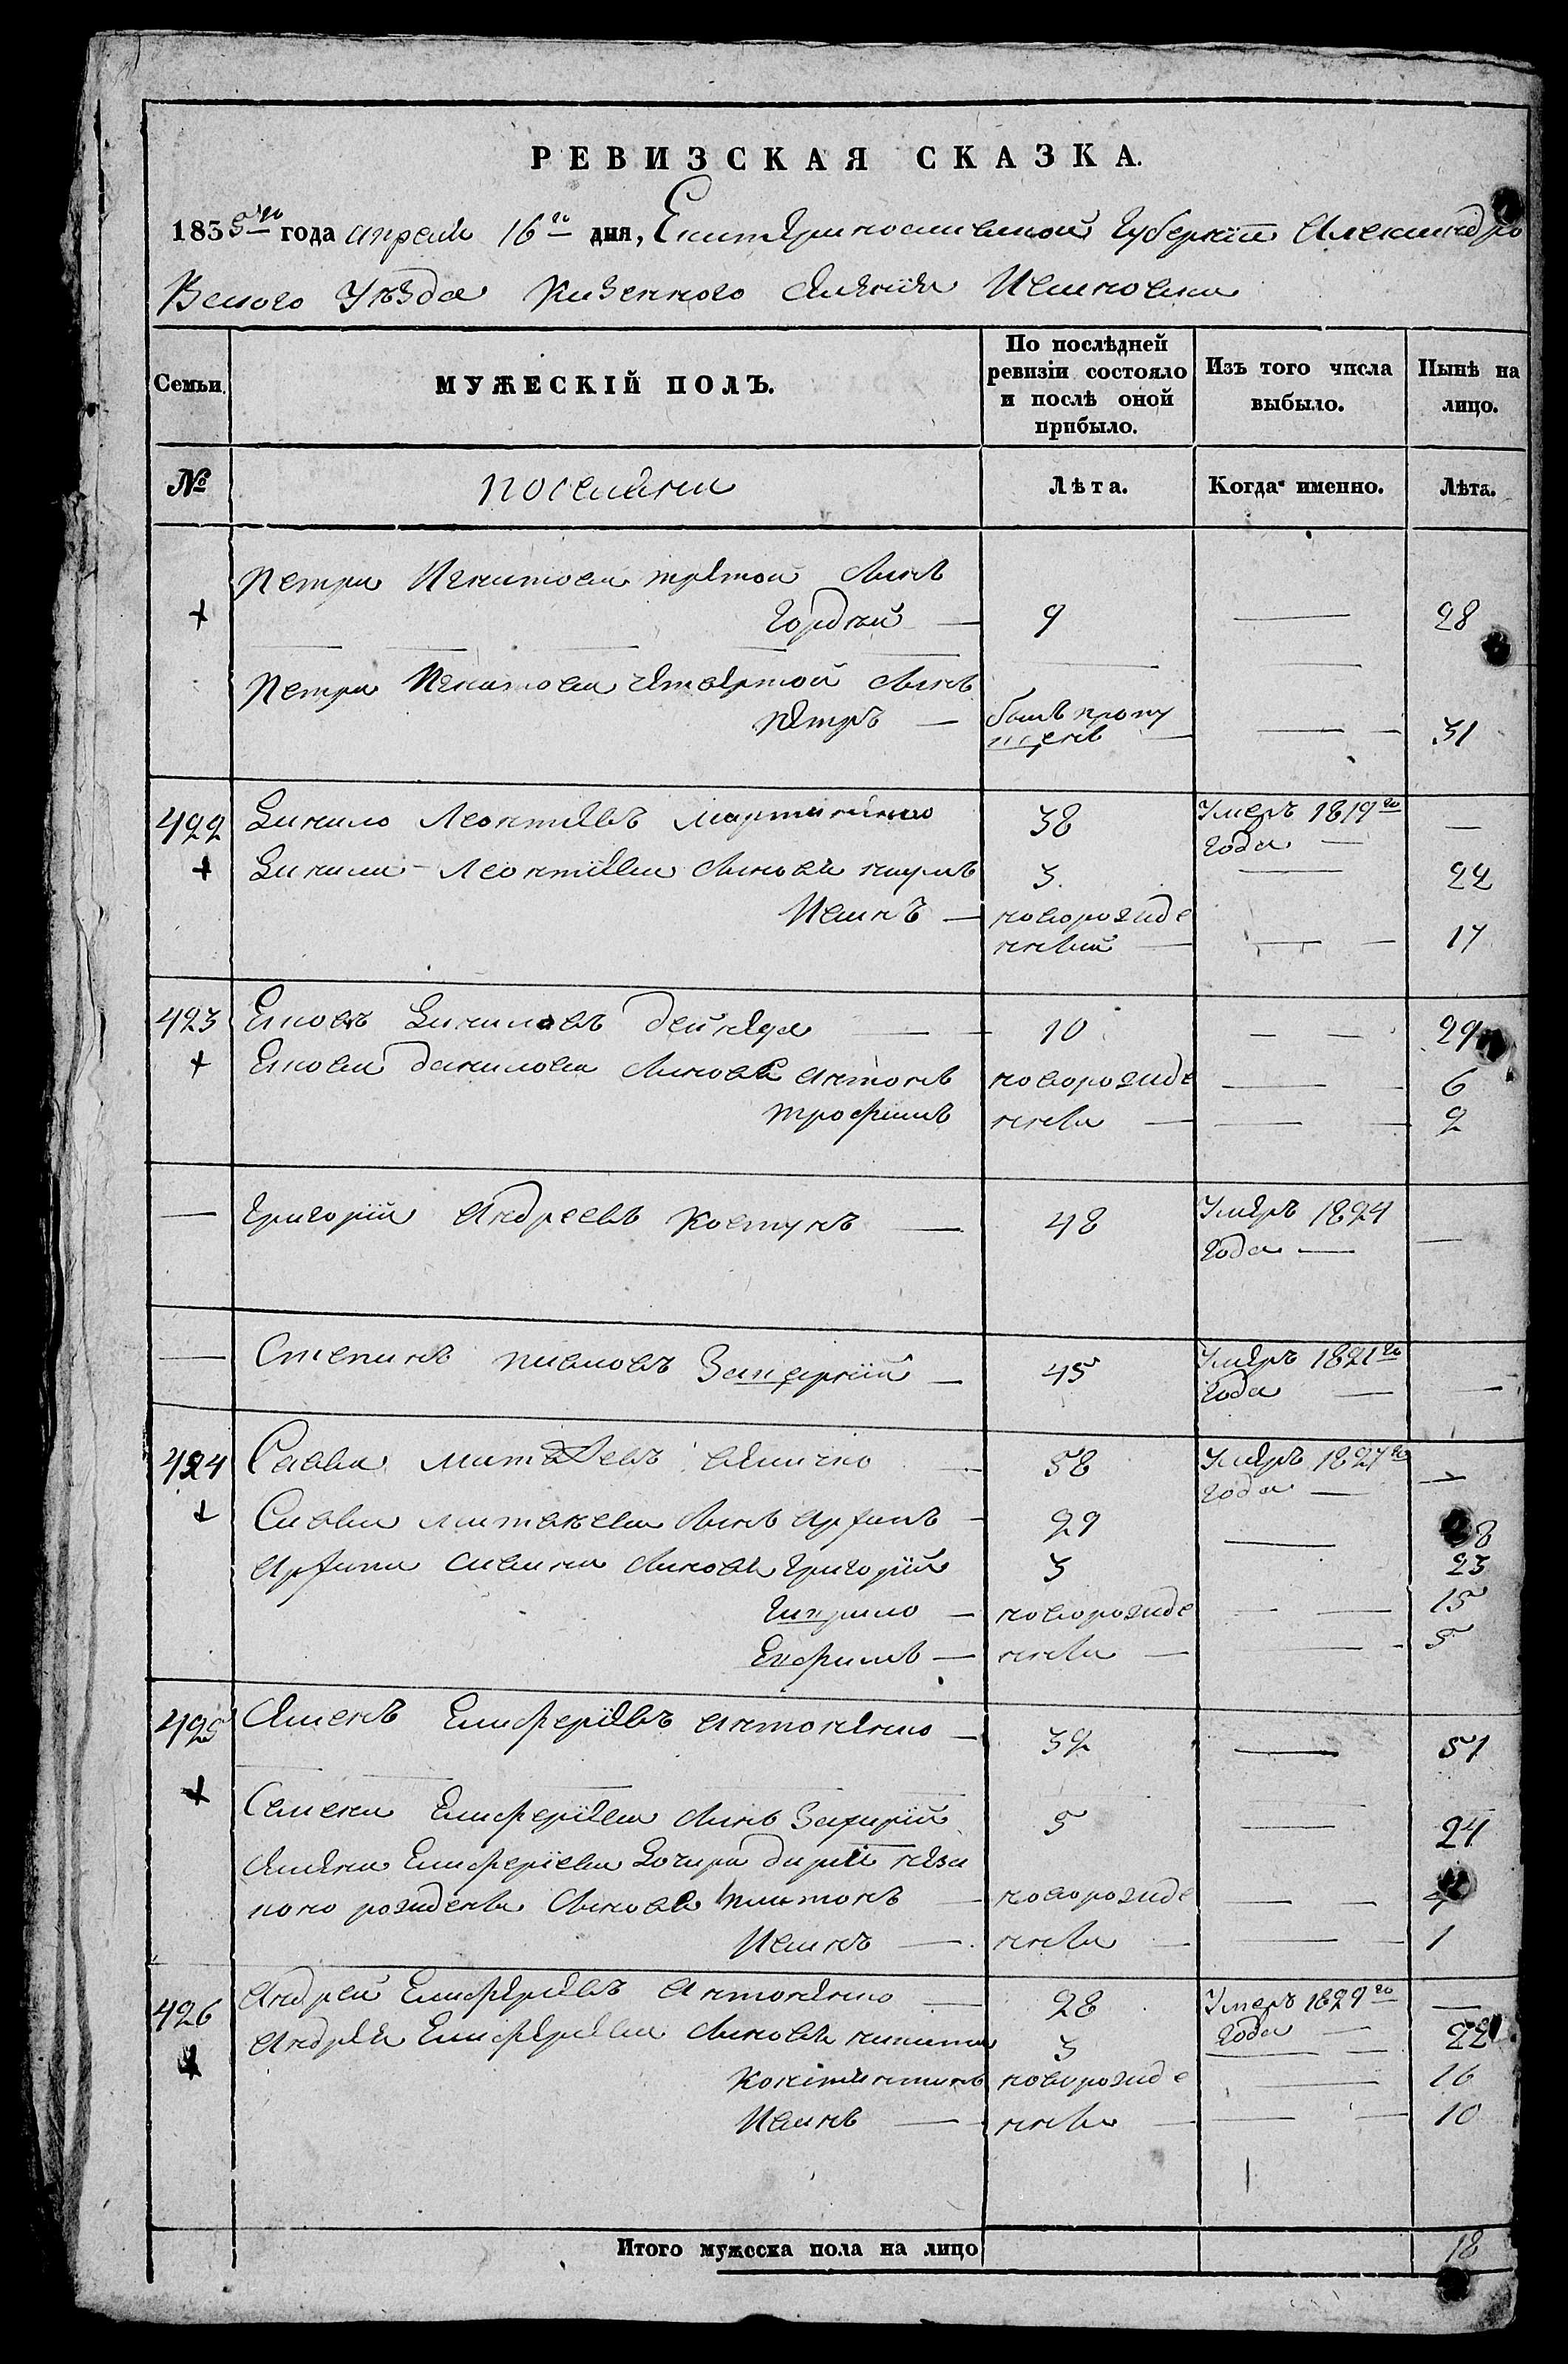 РЕВИЗСКАЯ СКАЗКА.
1835го года апреля 16го дня, Екатеринославской Губернии Александро
Вского Уѣзда Казенного селения Ивановки
Семьи.
МУЖЕСКІЙ ПОЛЪ.
По послѣдней ревизіи состояло и послѣ оной прибыло.
Изъ того числа выбыло.
Нынѣ на лицо.
№
поселяни
Лѣта.
Когда именно.
Лѣта.
Петра Игнатова третой сынъ
+ Гордѣй — 9 — 28
Петра Игнатова четвертой сынъ
Петръ — былъ пропу
щенъ — — 31
422 Данило Леонтіевъ 38 Умеръ 1819го —
года —
+ Данила Леонтіева сыновя наумъ 3. — 22
Иванъ — новорожде
нный — — 17
423 Яковъ Даниловъ дейнека — 10 — — 29
+ Якова данилова сыновя антонъ новорожде — 6
трофимъ нны — — 2
— Григорій Андреевъ Ковтунъ — 48 Умеръ 1824
года — —
— Степанъ павловъ — 45 Умеръ 1821го
года — —
424 Савва матвѣевъ величко — 58 Умеръ 1827го
года — —
+ Саввы матвѣева сынъ архипъ — 29 — 8
архипа савина сыновя Григорій 3 23
Гаврило — новорожде — — 15
Ефримъ — нны — — 5
425 Семенъ Елисферіевъ антоненко — 32 — 51
+ Семена Елисферіева сынъ Захарій 5 — 24
Семена Елисферіева дочери даріи неза
коно рождены сыновя платонъ — новорожде — —
Иванъ — нны — — 1
426 Андрей Елисферіевъ Антоненко — 28 Умеръ 1829го —
+ Андрея Елисферіева сыновя никита 3 года — 22
Константинъ новорожде — 16
Иванъ — нны — — 10
Итого мужеска пола на лицо 18